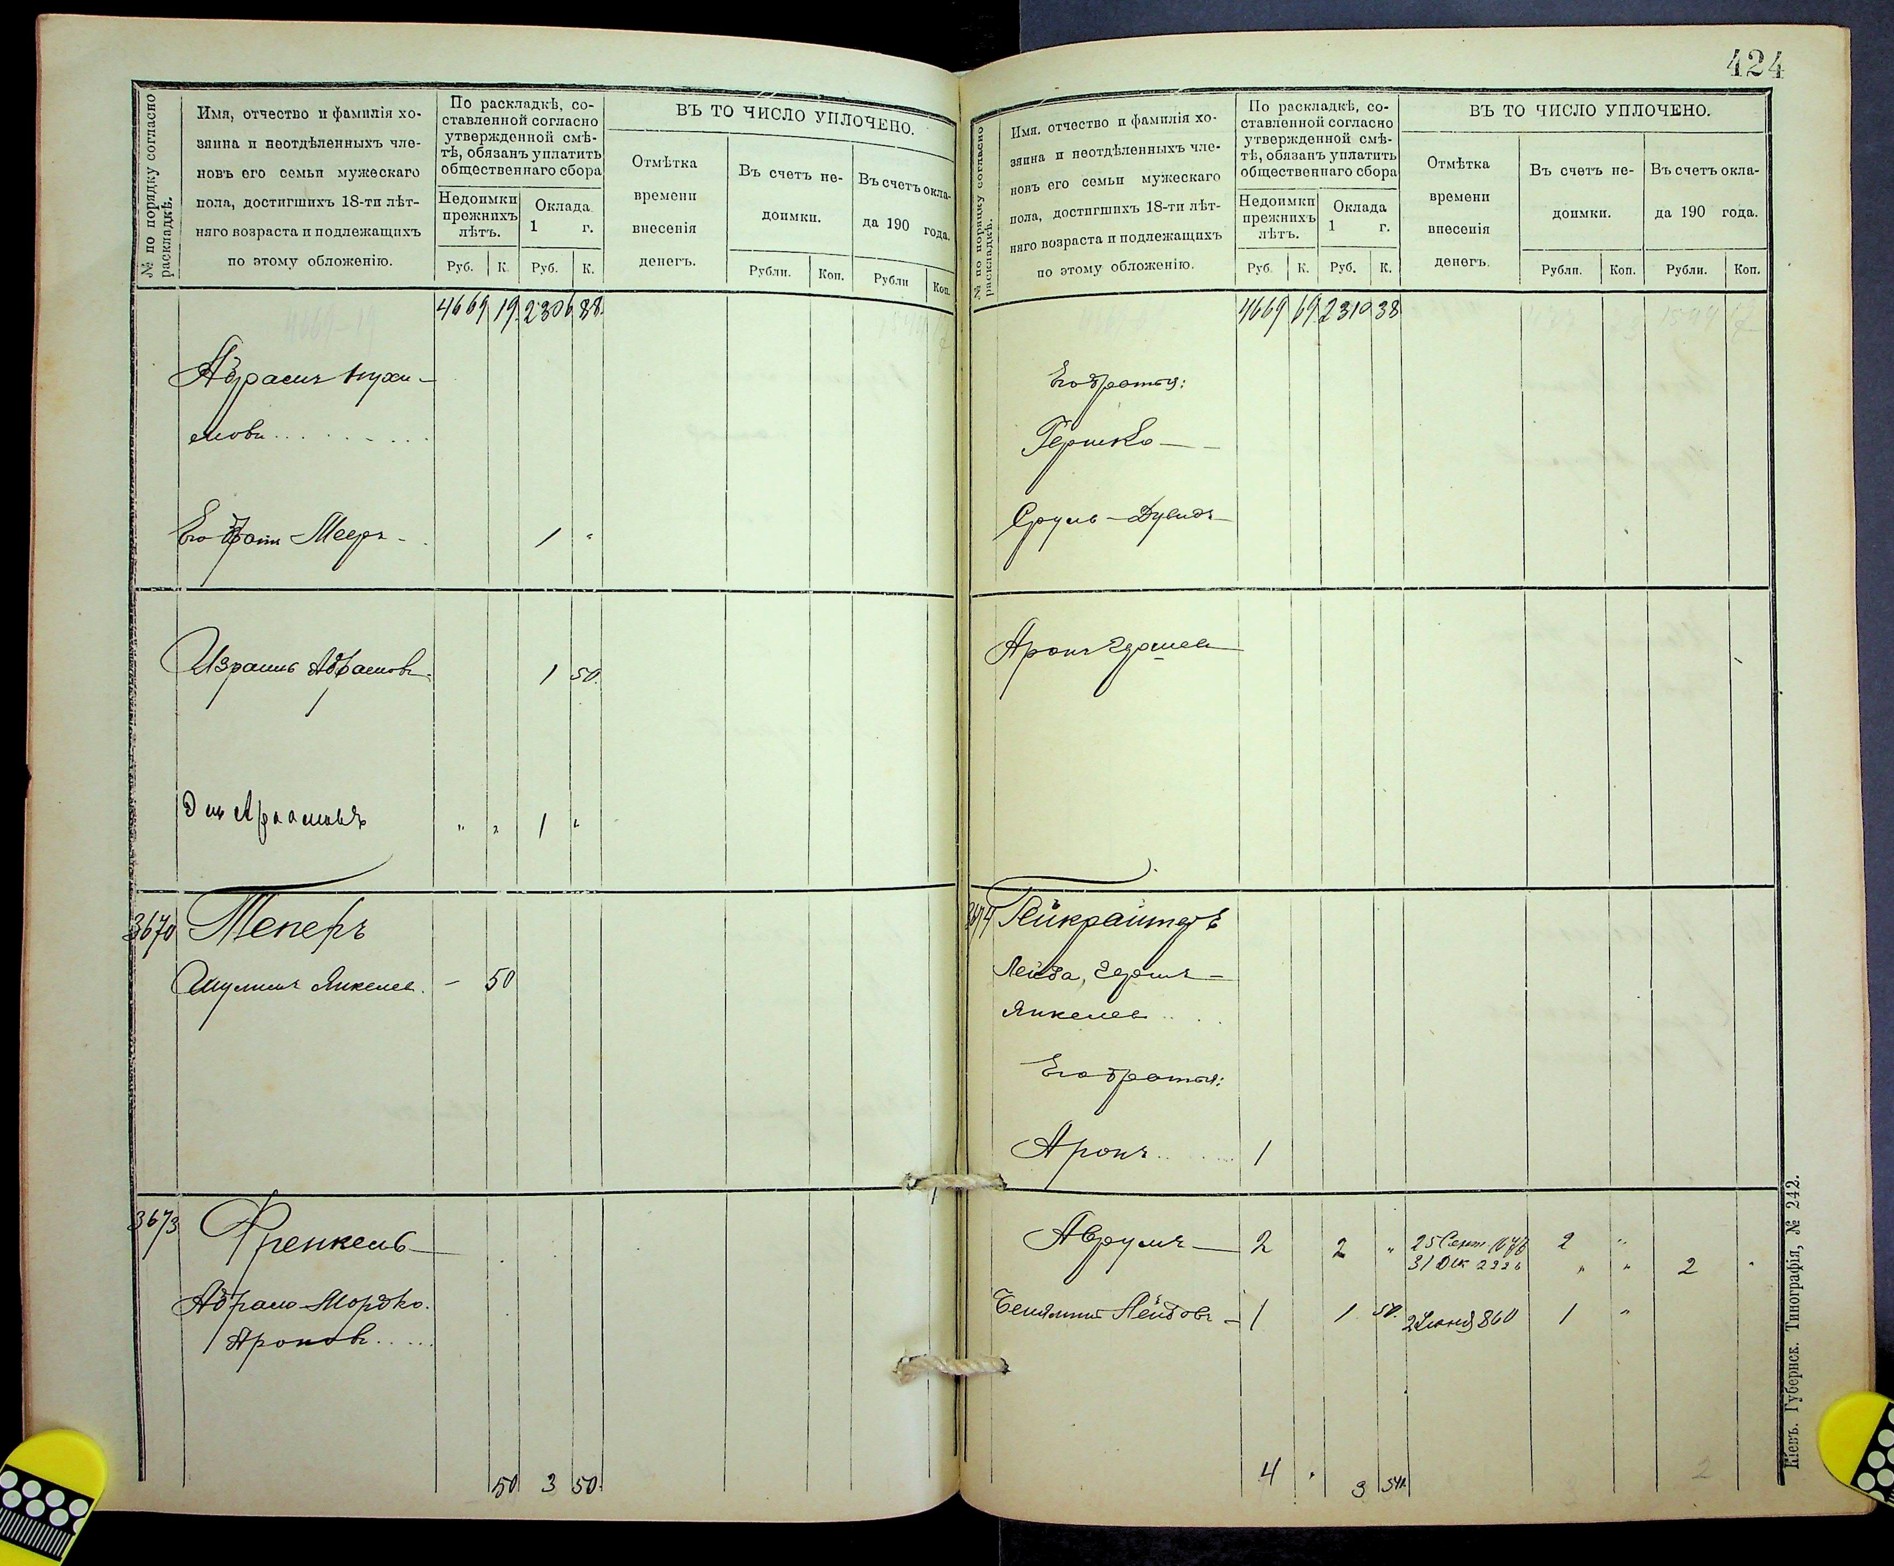 424
№ по порядку согласно раскладкѣ.
Имя, отчество и фамилія хо-
зяина и неотдѣленныхъ чле-
новъ его семьи мужескаго
пола, достигшихъ 18-ти лѣт-
няго возраста и подлежащихъ
по этому обложенію.
По раскладкѣ, со-
ставленной согласно
утвержденной смѣ-
тѣ, обязанъ уплатить
общественнаго сбора
Недоимки
прежнихъ
лѣтъ.
Оклада
1 г.
Руб. К. Руб. К.
ВЪ ТО ЧИСЛО УПЛОЧЕНО.
Отмѣтка
времени
внесенія
денегъ.
Въ счетъ не-
доимки.
Въ счетъ окла-
да 190 года.
Рубли. Коп. Рубли Коп.
4669 19 2306 88
Абрамъ Нухи-
мовъ
Его братъ Мееръ 1 "
Израиль Абрамовъ 1 50
" " 1 "
3670 Теперъ
Шулимъ Янкелев. - 50
3673 Френкель
Абрамъ-Мордко
Ароновъ
50 3 50
№ по порядку согласно раскладкѣ.
Имя, отчество и фамилія хо-
зяина и неотдѣленныхъ чле-
новъ его семьи мужескаго
пола, достигшихъ 18-ти лѣт-
няго возраста и подлежащихъ
по этому обложенію.
По раскладкѣ, со-
ставленной согласно
утвержденной смѣ-
тѣ, обязанъ уплатить
общественнаго сбора
Недоимки
прежнихъ
лѣтъ.
Оклада
1 г.
Руб. К. Руб. К.
ВЪ ТО ЧИСЛО УПЛОЧЕНО.
Отмѣтка
времени
внесенія
денегъ.
Въ счетъ не-
доимки.
Въ счетъ окла-
да 190 года.
Рубли. Коп. Рубли. Коп.
4669 69 2310 38
Его братья:
Гершко
Сруль-Дувидъ
Аронъ
3674
Лейба,
Янкелев
Его братья:
Аронъ 1
Аврумъ 2 2 " 25 Сент. 2 "
31 Дек 2226 " " 2 "
Беняминъ Лейбовъ 1 1 50 860 1 "
4 " 3 50
2
Кіевъ. Губернск. Типографія, № 242.